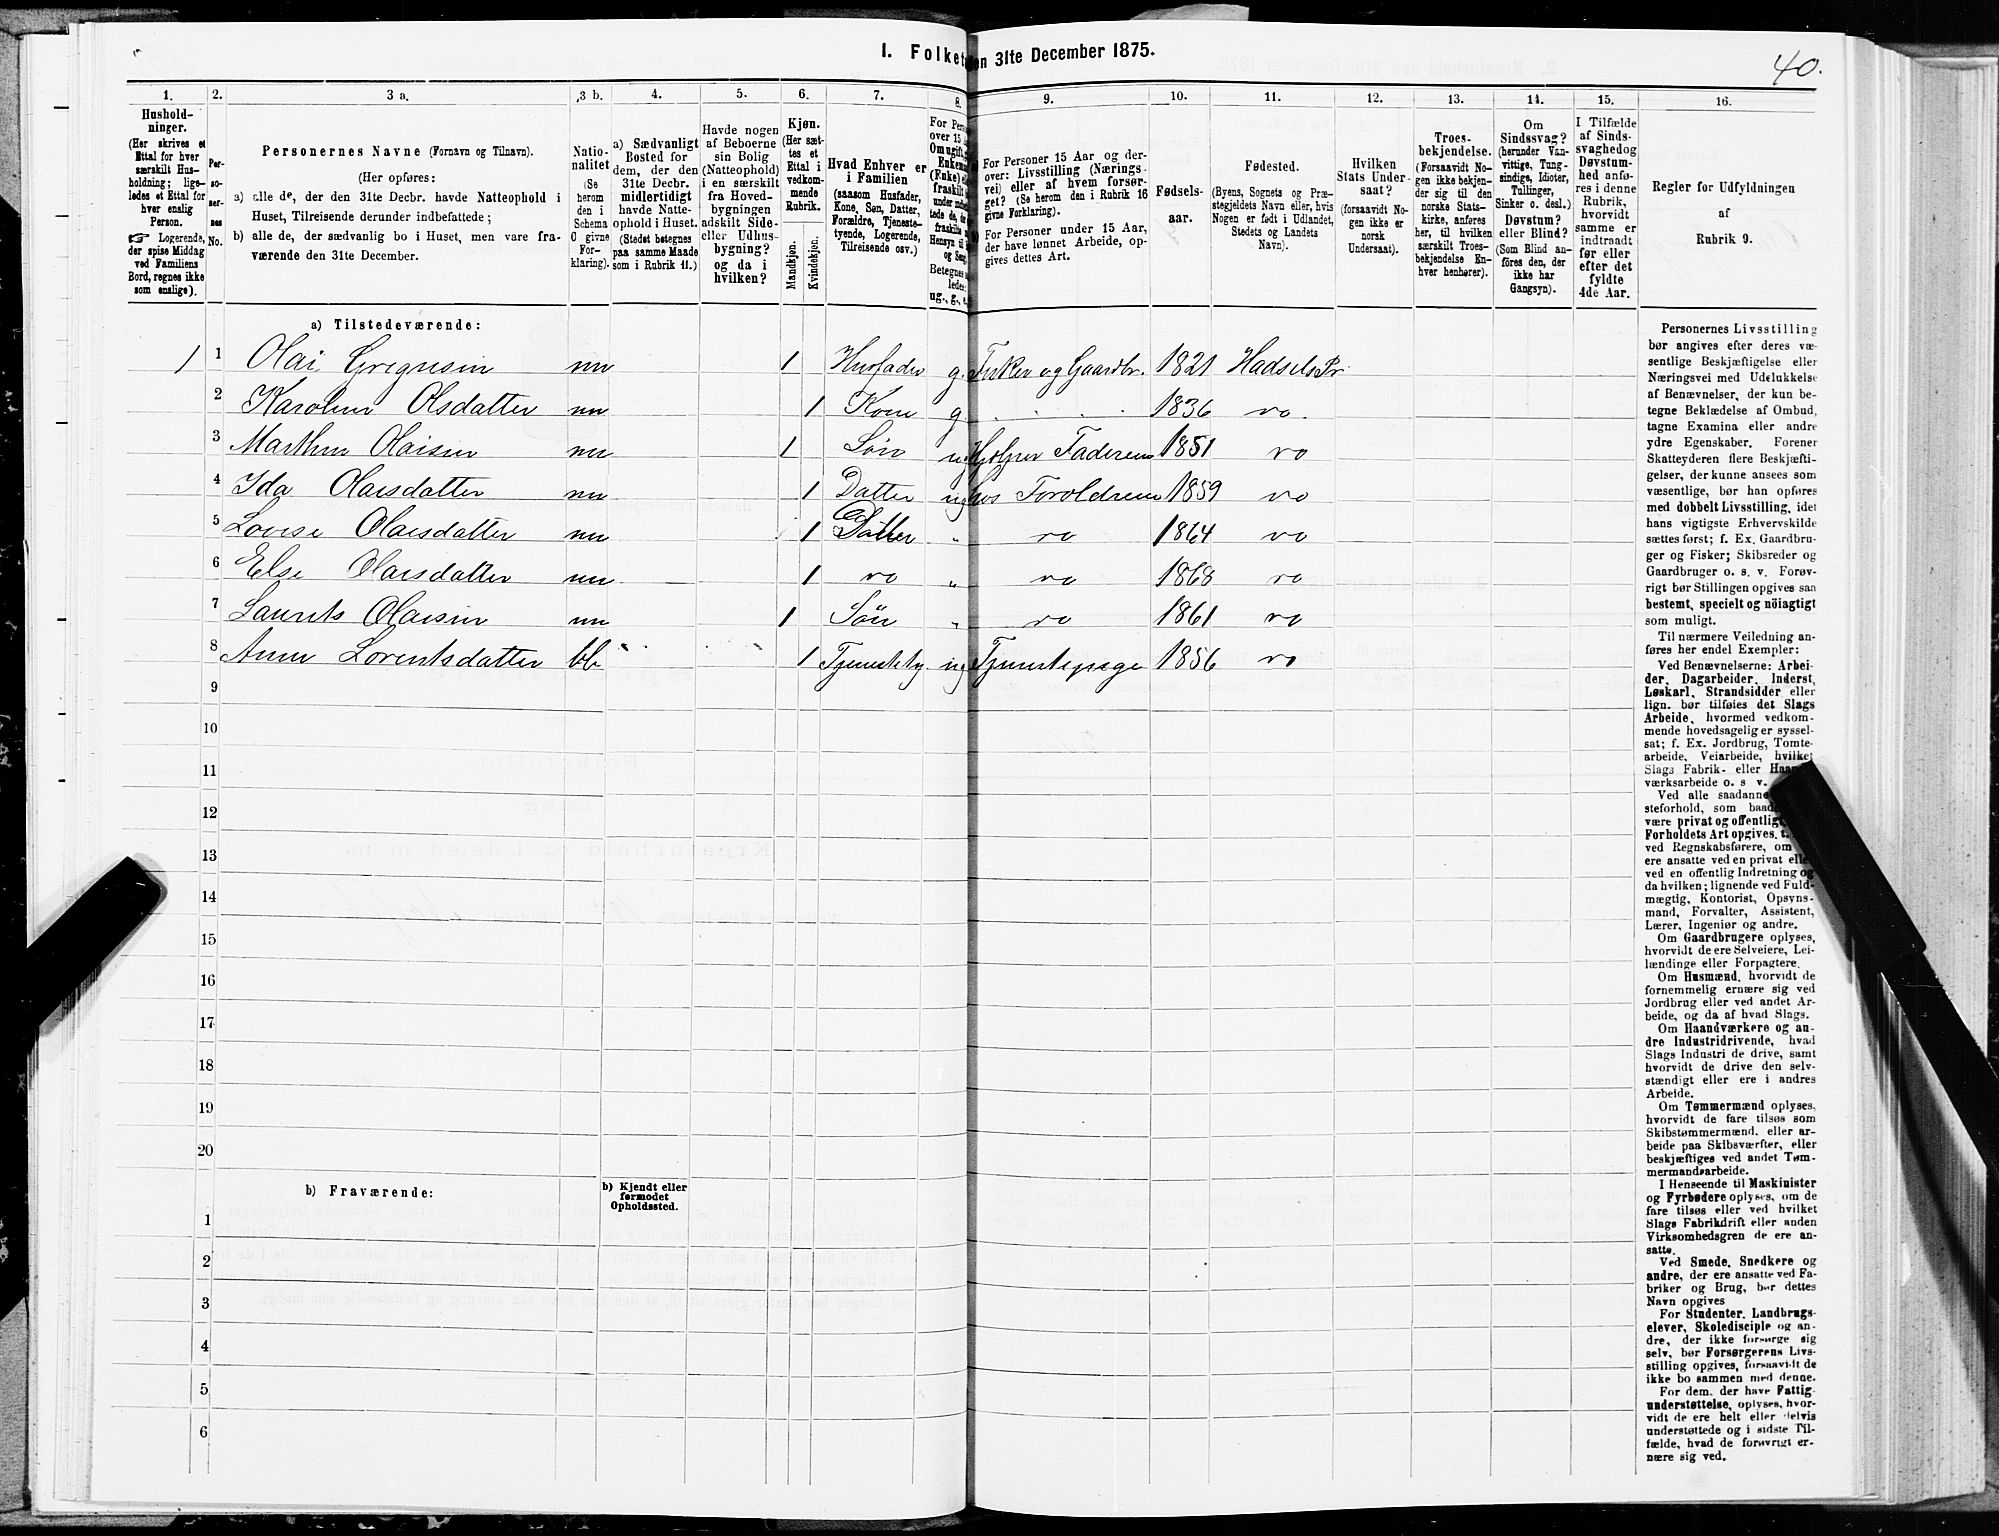 I. Folket en 31te December 1875.
40.
1. 2. 3 a. 3 b. 4. 5. 6. 7. 8. 9. 10. 11. 12. 13. 14. 15. 16.
Hushold-
ninger.
(Her skrives et
Ettal for hver
særskilt Hus-
holdning; lige-
ledes et Ettal for
hver enslig
Person.
☞ Logerende,
der spise Middag
ved Familiens
Bord, regnes ikke
som enslige).
Per-
so-
ner-
nes
No.
Personernes Navne (Fornavn og Tilnavn).
(Her opføres:
a) alle de, der den 31te Decbr. havde Natteophold i
Huset, Tilreisende derunder indbefattede;
b) alle de, der sædvanlig bo i Huset, men vare fra-
værende den 31te December.
Natio-
nalitet
(Se
herom
den i
Schema
C givne
For-
klaring).
a) Sædvanligt
Bosted for
dem, der den
31te Decbr.
midlertidigt
havde Natte-
ophold i Huset.
(Stedet betegnes
paa samme Maade
som i Rubrik 11.)
Havde nogen
af Beboerne
sin Bolig
(Natteophold)
i en særskilt
fra Hoved-
bygningen
adskilt Side-
eller Udhus-
bygning?
og da i
hvilken?
Kjøn.
(Her sæt-
tes et
Ettal i
vedkom-
mende
Rubrik.
Mandkjøn.
Kvindekjøn.
Hvad Enhver er
i Familien
(saasom Husfader,
Kone, Søn, Datter,
Forældre, Tjeneste-
tyende, Logerende,
Tilreisende osv.)
For Pers
over 15
Om ugift,
Enkem
(Enke)
fraskilt
Betegnes
ledes:
ug., g.,
For Personer 15 Aar og der-
over: Livsstilling (Nærings-
vei) eller af hvem forsør-
get? (Se herom den i Rubrik 16
givne Forklaring).
For Personer under 15 Aar,
der have lønnet Arbeide, op-
gives dettes Art.
Fødsels-
aar.
Fødested.
(Byens, Sognets og Præ-
stegjeldets Navn eller, hvis
Nogen er født i Udlandet,
Stedets og Landets
Navn).
Hvilken
Stats Under-
saat?
(forsaavidt No-
gen ikke er
norsk
Undersaat).
Troes-
bekjendelse.
(Forsaavidt No-
gen ikke bekjen-
der sig til den
norske Stats-
kirke, anføres
her, til hvilken
særskilt Troes-
bekjendelse En-
hver henhører).
Om
Sindssvag?
(herunder Van-
vittige, Tung-
sindige, Idioter,
Tullinger,
Sinker o. desl.)
Døvstum?
eller Blind?
(Som Blind an-
føres den, der
ikke har
Gangsyn).
I Tilfælde
af Sinds-
svaghed og
Døvstum-
hed anfø-
res i denne
Rubrik,
hvorvidt
samme er
indtraadt
før eller
efter det
fyldte
4de Aar.
Regler for Udfyldningen
af
Rubrik 9.
a) Tilstedeværende:
1 1 Olai Gregusen nn 1 Husfader g. Fisker og Gaardbr. 1821 Hadsels Pr
2 Karolin Olsdatter nn 1 Kone g 1836 do
3 Marthin Olaisen nn 1 Søn ug Hjelper Faderen 1851 do
4 Ida Olaisdatter nn 1 Datter ug hos Foroldrene 1859 do
5 Lovise Olaisdatter nn 1 Datter " do 1864 do
6 Else Olaisdatter nn 1 do " do 1868 do
7 Laurits Olaisen nn 1 Søn " do 1861 do
8 Anne Lorentsdatter bb 1 Tjenestety. ug Tjenestepige 1856 do
9
10
11
12
13
14
15
16
17
18
19
20
b) Fraværende:
b) Kjendt eller
formodet
Opholdssted.
1
2
3
4
5
6
Personernes Livsstilling
bør angives efter deres væ-
sentlige Beskjæftigelse eller
Næringsvei med Udelukkelse
af Benævnelser, der kun be-
tegne Beklædelse af Ombud,
tagne Examina eller andre
ydre Egenskaber. Forener
Skatteyderen flere Beskjæfti-
gelser, der kunne ansees som
væsentlige, bør han opføres
med dobbelt Livsstilling, idet
hans vigtigste Erhvervskilde
sættes først; f. Ex. Gaardbru-
ger og Fisker; Skibsreder og
Gaardbruger o. s. v. Forøv-
rigt bør Stillingen opgives saa
bestemt, specielt og nöiagtigt
som muligt.
Til nærmere Veiledning an-
føres her endel Exempler:
Ved Benævnelserne: Arbei-
der, Dagarbeider, Inderst,
Løskarl, Strandsidder eller
lign. bør tilføies det Slags
Arbeide, hvormed vedkom-
mende hovedsagelig er syssel-
sat; f. Ex. Jordbrug, Tomte-
arbeide, Veiarbeide, hvilket
Slags Fabrik- eller Haand-
værksarbeide o. s. v.
Ved alle saadanne
steforhold, som baade
være privat og offentligt,
Forholdets Art opgives, t.
ved Regnskabsførere, om
ere ansatte ved en privat eller
ved en offentlig Indretning og
da hvilken; lignende ved Fuld-
mægtig, Kontorist, Opsyns-
mand, Forvalter, Assistent,
Lærer, Ingeniør og andre.
Om Gaardbrugere oplyses,
hvorvidt de ere Selveiere, Lei-
lændinge eller Forpagtere.
Om Husmænd, hvorvidt de
fornemmelig ernære sig ved
Jordbrug eller ved andet Ar-
beide, og da af hvad Slags.
Om Haandværkere og an-
dre Industridrivende, hvad
Slags Industri de drive, samt
hvorvidt de drive den selv-
stændigt eller ere i andres
Arbeide.
Om Tømmermænd oplyses,
hvorvidt de fare tilsøs som
Skibstømmermænd, eller ar-
beide paa Skibsværfter, eller
beskjæftiges ved andet Tøm-
mermandsarbeide.
I Henseende til Maskinister
og Fyrbødere oplyses, om de
fare tilsøs eller ved hvilket
Slags Fabrikdrift eller anden
Virksomhedsgren de ere an-
satte.
Ved Smede, Snedkere og
andre, der ere ansatte ved Fa-
briker og Brug, bør dettes
Navn opgives
For Studenter, Landbrugs-
elever, Skoledisciple og an-
dre, der ikke forsørge sig
selv, bør Forsørgerens Livs-
stilling opgives, forsaavidt de
ikke bo sammen med denne.
For dem, der have Fattig-
understøttelse, oplyses, hvor-
vidt de ere helt eller delvis
understøttede og i sidste Til-
fælde, hvad de forøvrigt er-
nære sig ved.